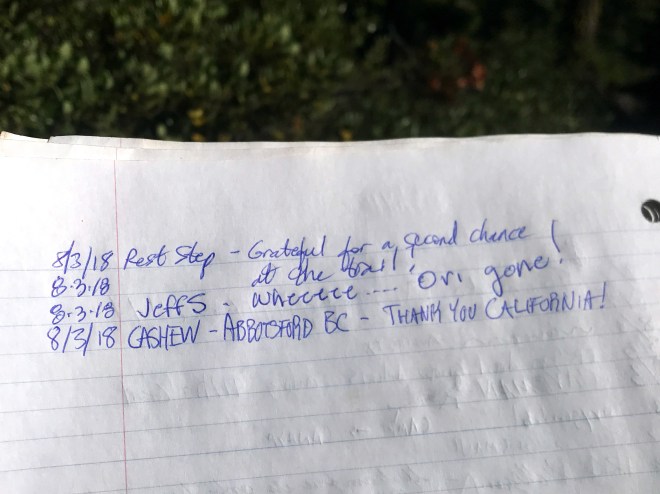 8/3/18 Rest Step - Grateful for a second chance
8.3.18 at the trail!
8.3.18 JeffS. wheeeee.... 'Ori gone!
8/3/18 CASHEW - ABBOTSFORD BC - THANK YOU CALIFORNIA!